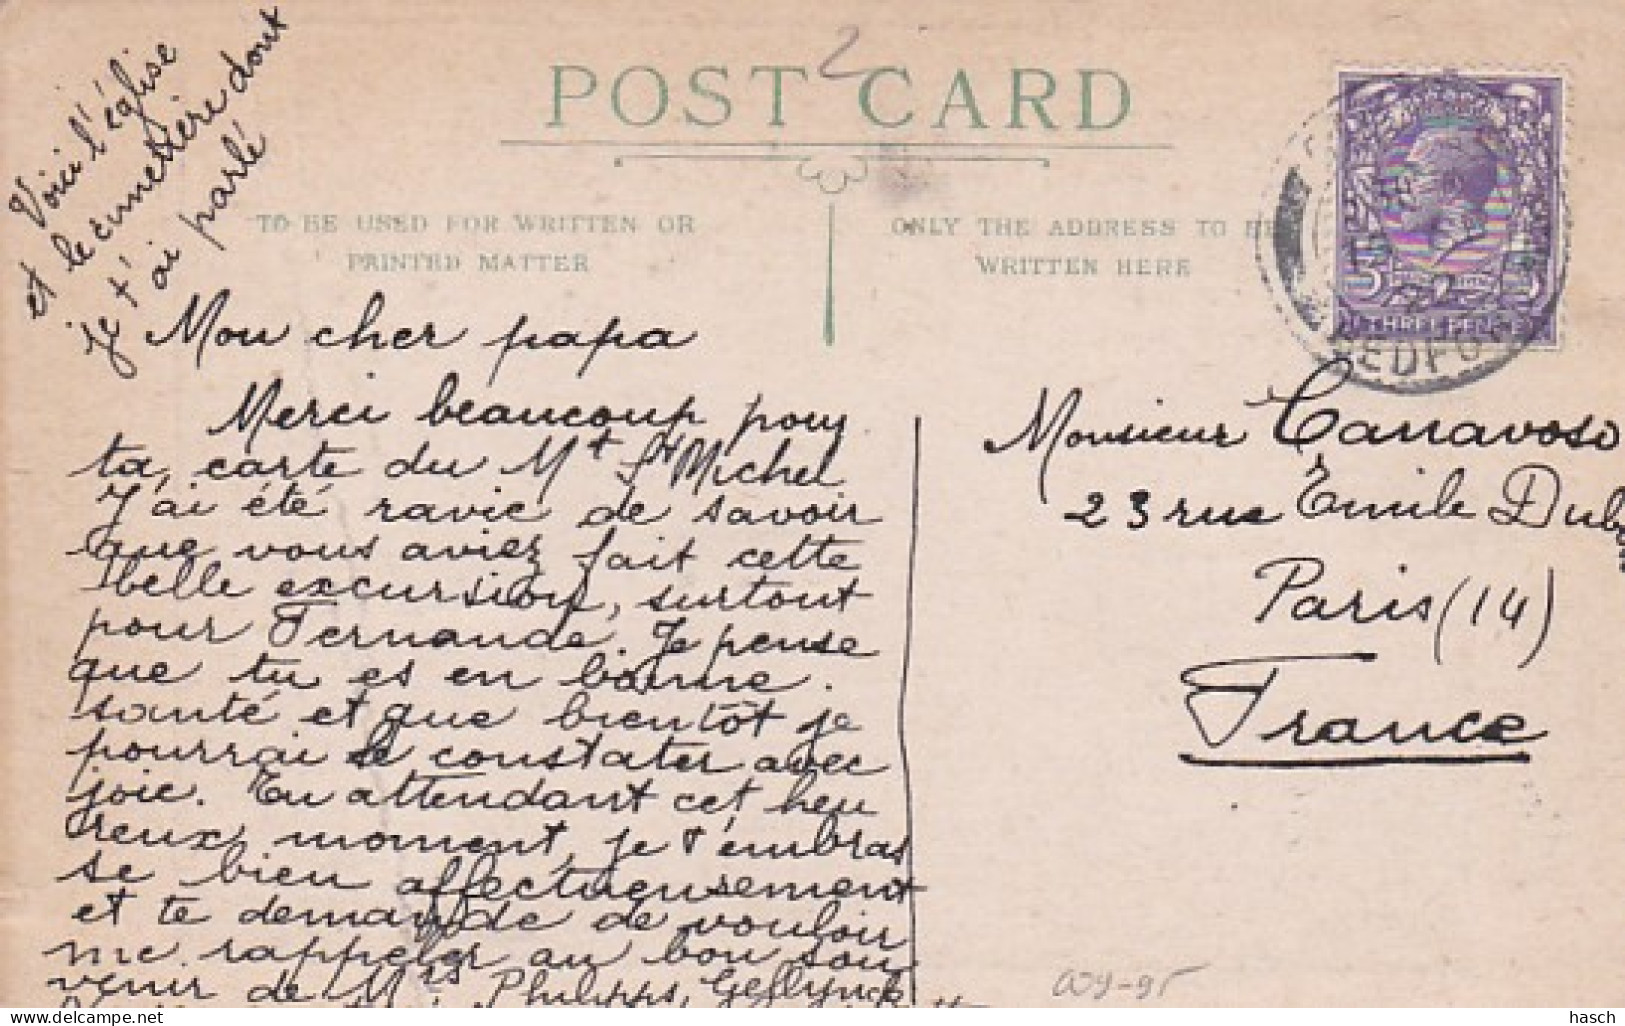 Voici l'église
et le cimetière dont
je t'ai parlé
2
POST CARD
TO BE USED FOR WRITTEN OR
PRINTED MATTER
ONLY THE ADDRESS TO BE
WRITTEN HERE
THREE PENCE
BEDFO
Mon cher papa
Merci beaucoup pour
ta carte du Mt St Michel
J'ai été ravie de savoir
que vous aviez fait cette
belle excursion, surtout
pour Fernande. Je pense
que tu es en bonne
santé et que bientôt je
pourrai le constater avec
joie. En attendant cet heu
reux moment, je t'embras
se bien affectueusement
et te demande de vouloir
me rappeler au bon sou
venir de Mrs Philipps,
Monsieur Canavoso
23 rue Emile Dub
Paris (14)
France
hasch
www.delcampe.net